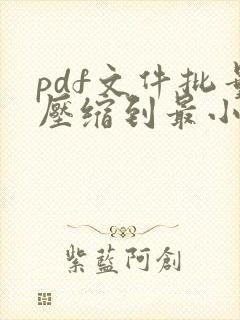 pdf文件批量
壓缩到最小
紫藍阿創